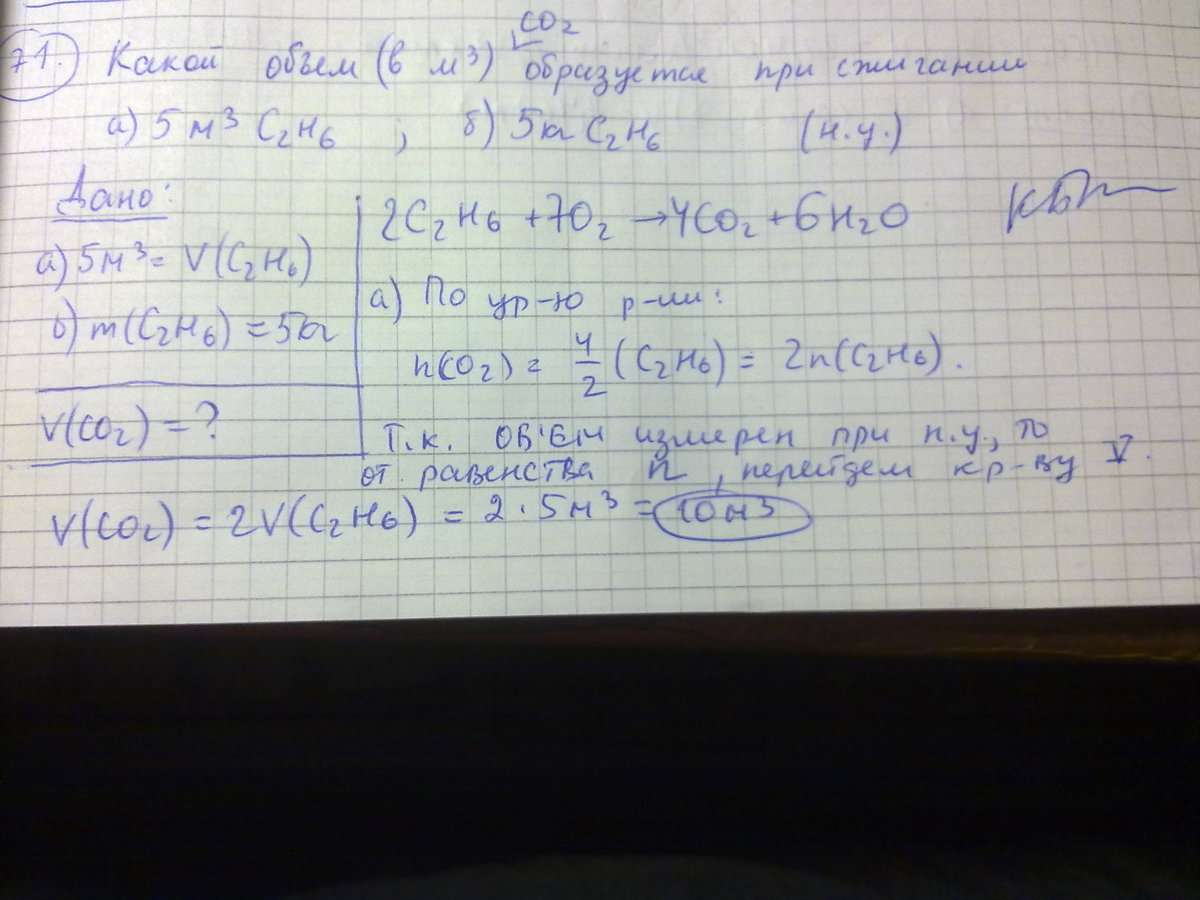 71. Какой объем (в м³) CO₂ образуется при сжигании
а) 5 м³ C₂H₆ ; б) 5 кг C₂H₆ (н.у.)
Дано:
а) 5м³ = V(C₂H₆)
б) m(C₂H₆) = 5кг
V(CO₂) = ?
2C₂H₆ + 7O₂ → 4CO₂ + 6H₂O
а) По ур-ю р-ции:
n(CO₂) = 4/2 (C₂H₆) = 2n(C₂H₆).
Т.к. ОБ'ЁМ измерен при н.у., то
от равенства n, перейдем к р-ву V.
V(CO₂) = 2V(C₂H₆) = 2 · 5м³ = 10м³